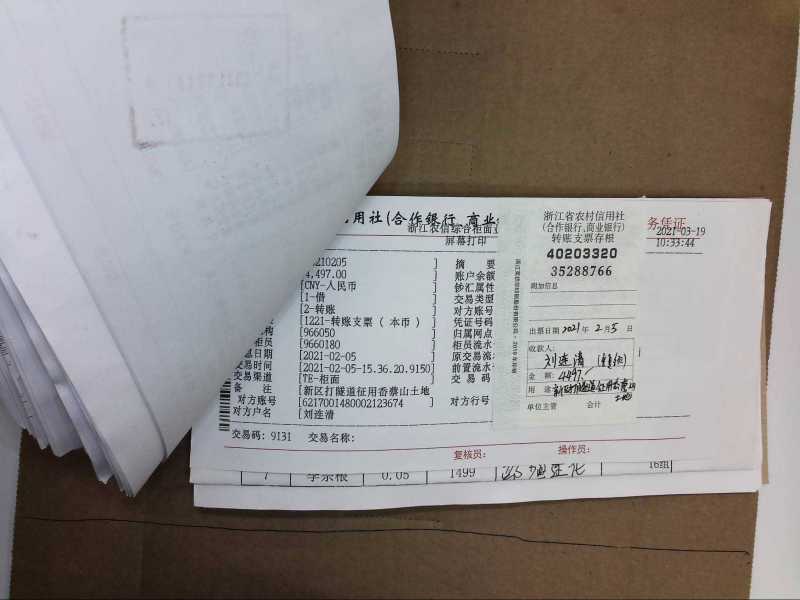 用社(合作银行、商业
务凭证
浙江农信综合柜面业
屏幕打印
2021-03-19
10:33:44
210205
4,497.00
[CNY-人民币
[1-借
[2-转账
[1221-转账支票(本币)
构 [966050
柜员 [9660180
日期 [2021-02-05
交易时间 [2021-02-05-15.36.20.9150]
交易渠道 [TE-柜面
备 注 [新区打隧道征用香蔡山土地
对方账号 [6217001480002123674
对方户名 [刘连清
摘 要
账户余额
钞汇属性
交易类型
对方账号
凭证号码
归属网点
柜员流水
原交易流水
前置流水
交易码
对方行号
交易码: 9131 交易名称:
复核员: 操作员:
浙江省农村信用社
(合作银行、商业银行)
转账支票存根
40203320
35288766
附加信息
出票日期 2021年 2月 5日
收款人:
刘连清
金 额: 4497.
用 途
单位主管 会计
7 李余根 0.05 1499 16组